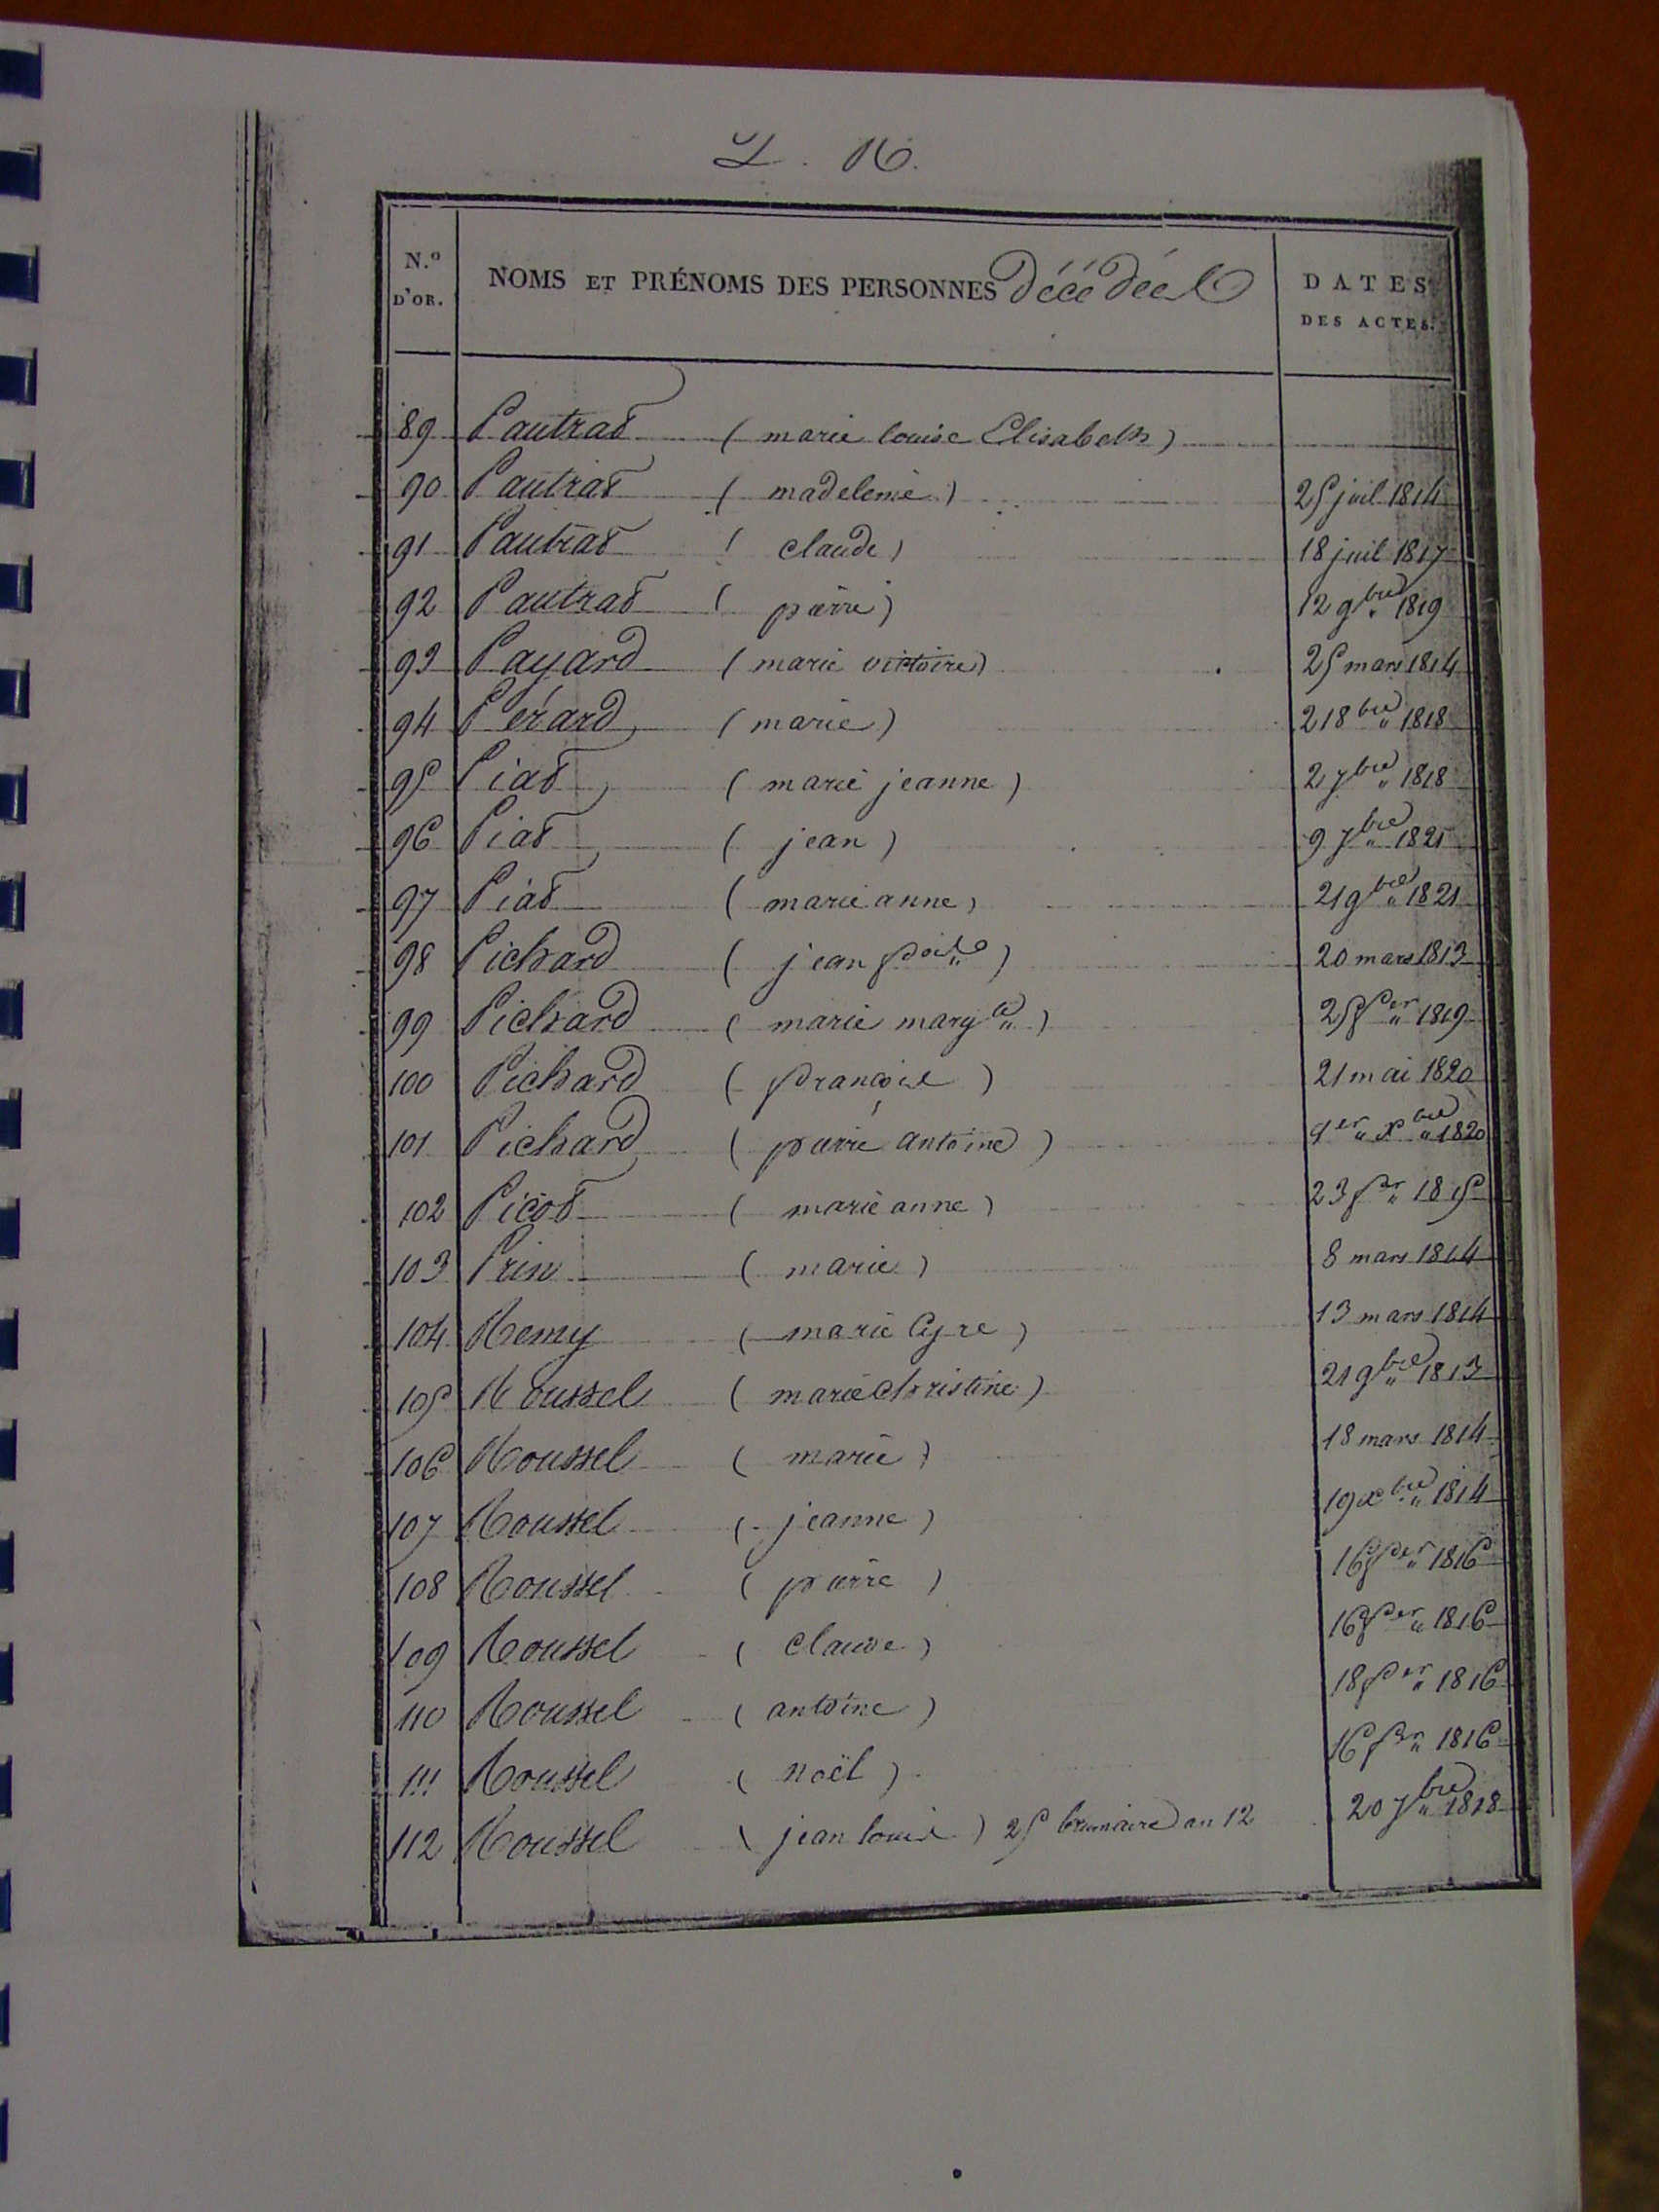 N.º D'OR. NOMS ET PRÉNOMS DES PERSONNES décédées DATES DES ACTES.
89 Pautras (marie louise Elisabeth)
90 Pautras (madeleine) 25 juil 1814
91 Pautras (claude) 18 juil 1817
92 Pautras (pierre) 12 9bre 1819
93 Payard (marie victoire) 25 mars 1814
94 Pérard (marie) 21 8bre 1818
95 Pias (marie jeanne) 2 7bre 1818
96 Pias (jean) 9 7bre 1821
97 Pias (marie anne) 21 9bre 1821
98 Pichard (jean) 20 mars 1813
99 Pichard (marie margte) 25 fer 1819
100 Pichard (françois) 21 mai 1820
101 Pichard (pierre antoine) 1er xbre 1820
102 Picos (marie anne) 23 fer 1815
103 Prin (marie) 8 mars 1814
104 Remy (marie Cyre) 13 mars 1814
105 Roussel (marie Christine) 21 9bre 1813
106 Roussel (marie) 18 mars 1814
107 Roussel (jeanne) 19 xbre 1814
108 Roussel (pierre) 16 fer 1816
109 Roussel (Claude) 16 fer 1816
110 Roussel (antoine) 18 fer 1816
111 Roussel (noël) 16 fer 1816
112 Roussel (jean louis) 25 brumaire an 12 20 7bre 1818